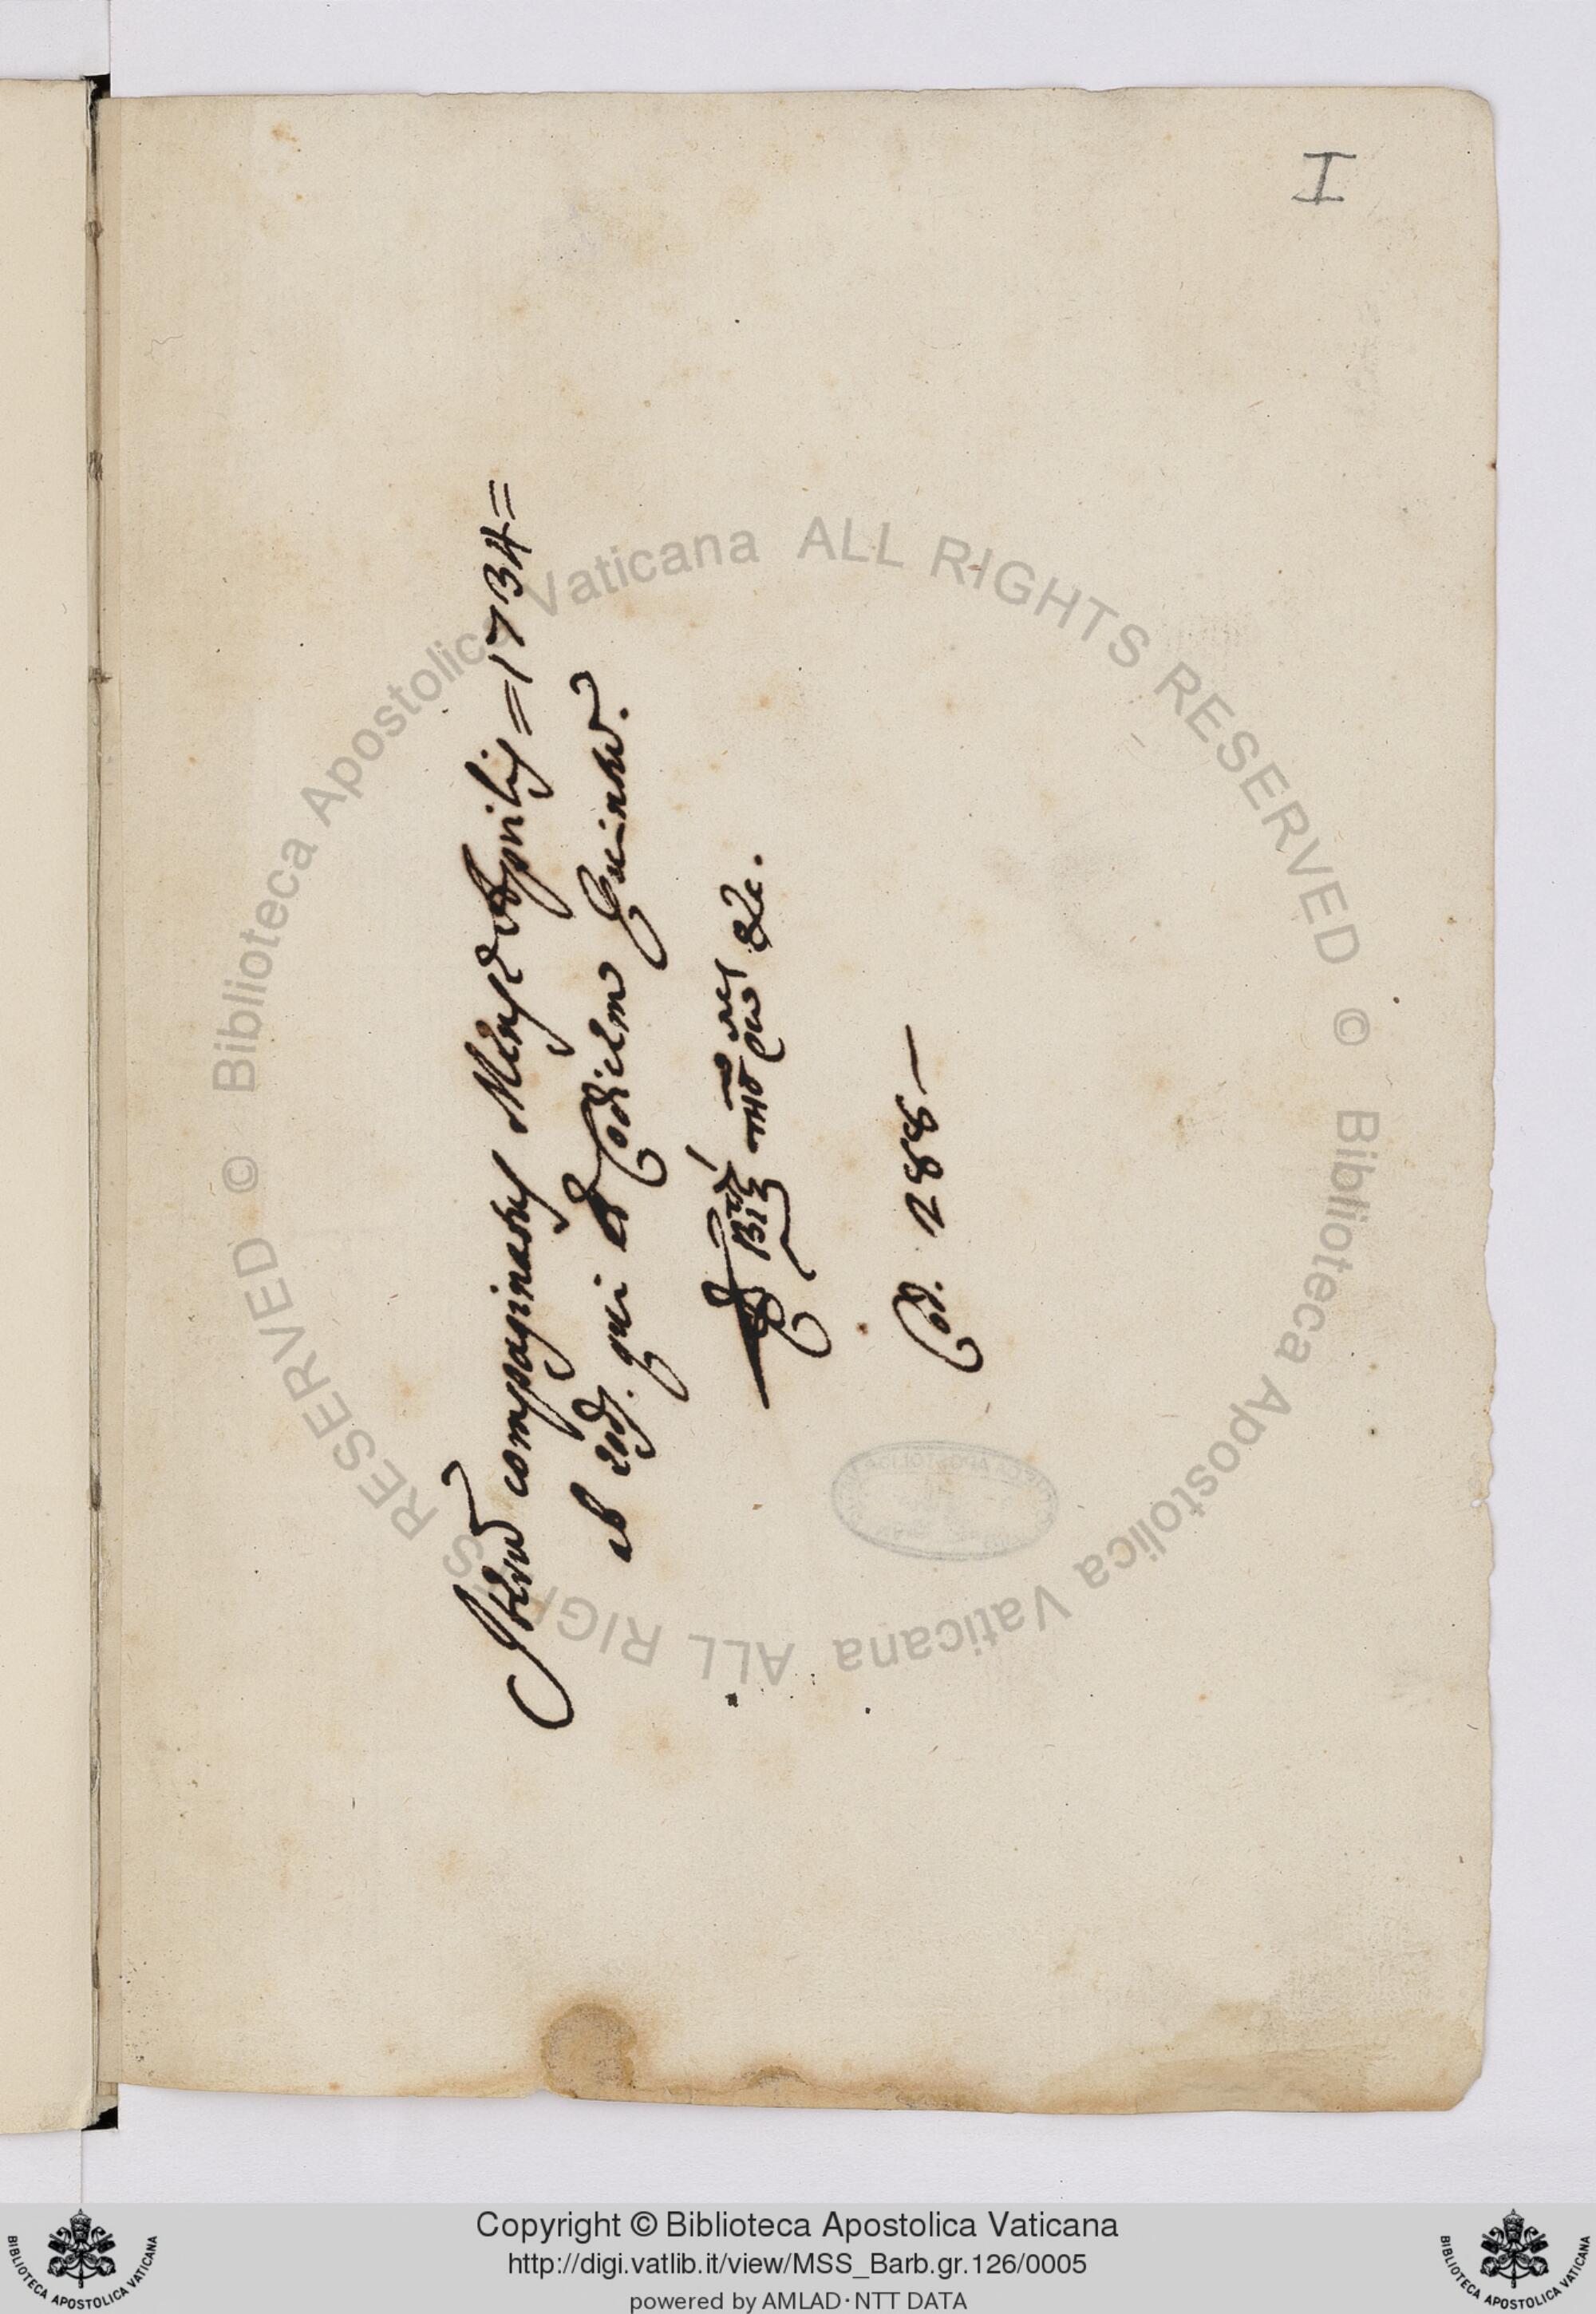 I
Iterum compaginatus Mense Aprilis = 1734 =
ab eod. qui et Codicem
&c.
Cod. 288 —
© Biblioteca Apostolica Vaticana ALL RIGHTS RESERVED
© Biblioteca Apostolica Vaticana ALL RIGHTS RESERVED
Copyright © Biblioteca Apostolica Vaticana
http://digi.vatlib.it/view/MSS_Barb.gr.126/0005
powered by AMLAD·NTT DATA
BIBLIOTECA APOSTOLICA VATICANA
BIBLIOTECA APOSTOLICA VATICANA